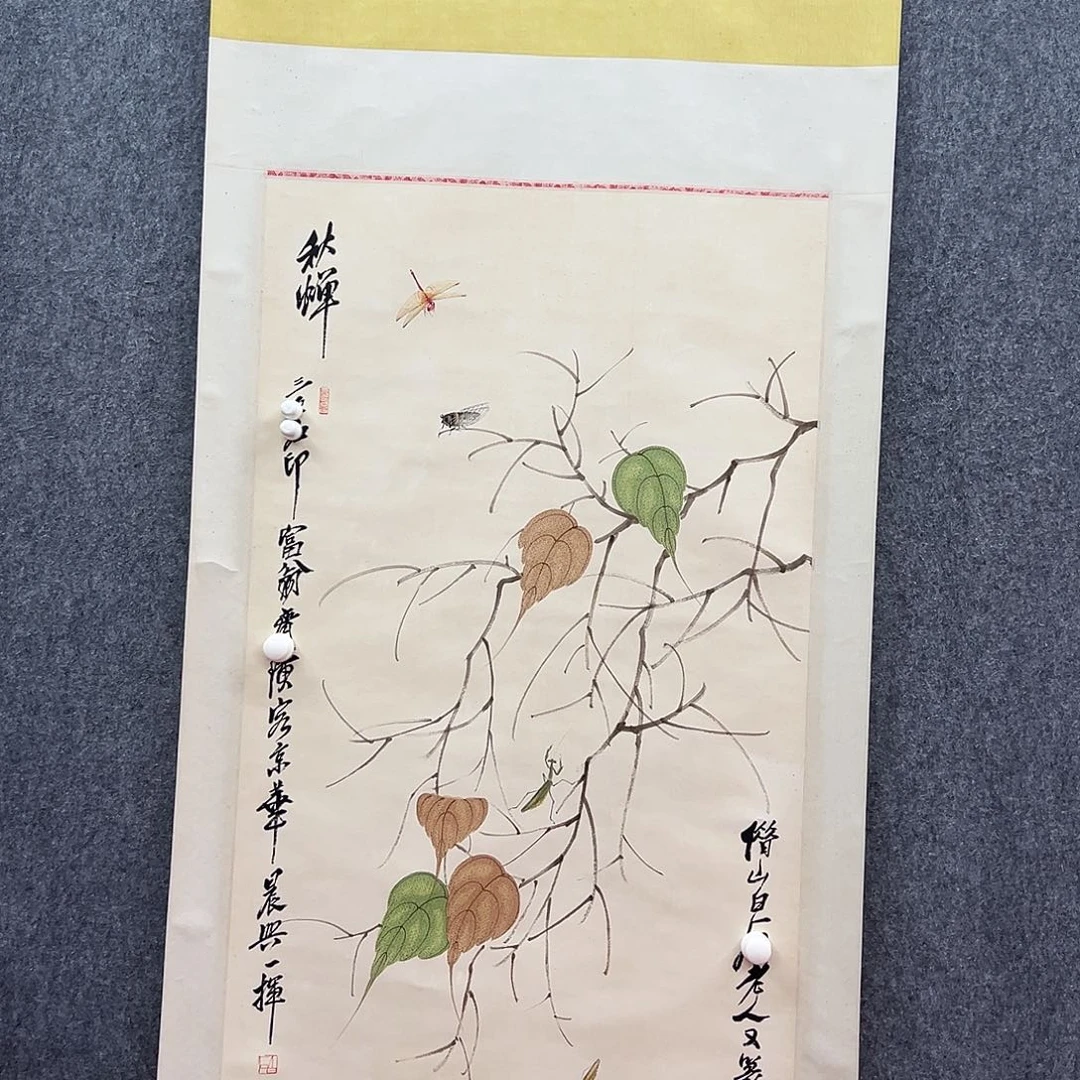 秋蟬
三
印富翁齊璜客京華晨興一揮
借山
老人又